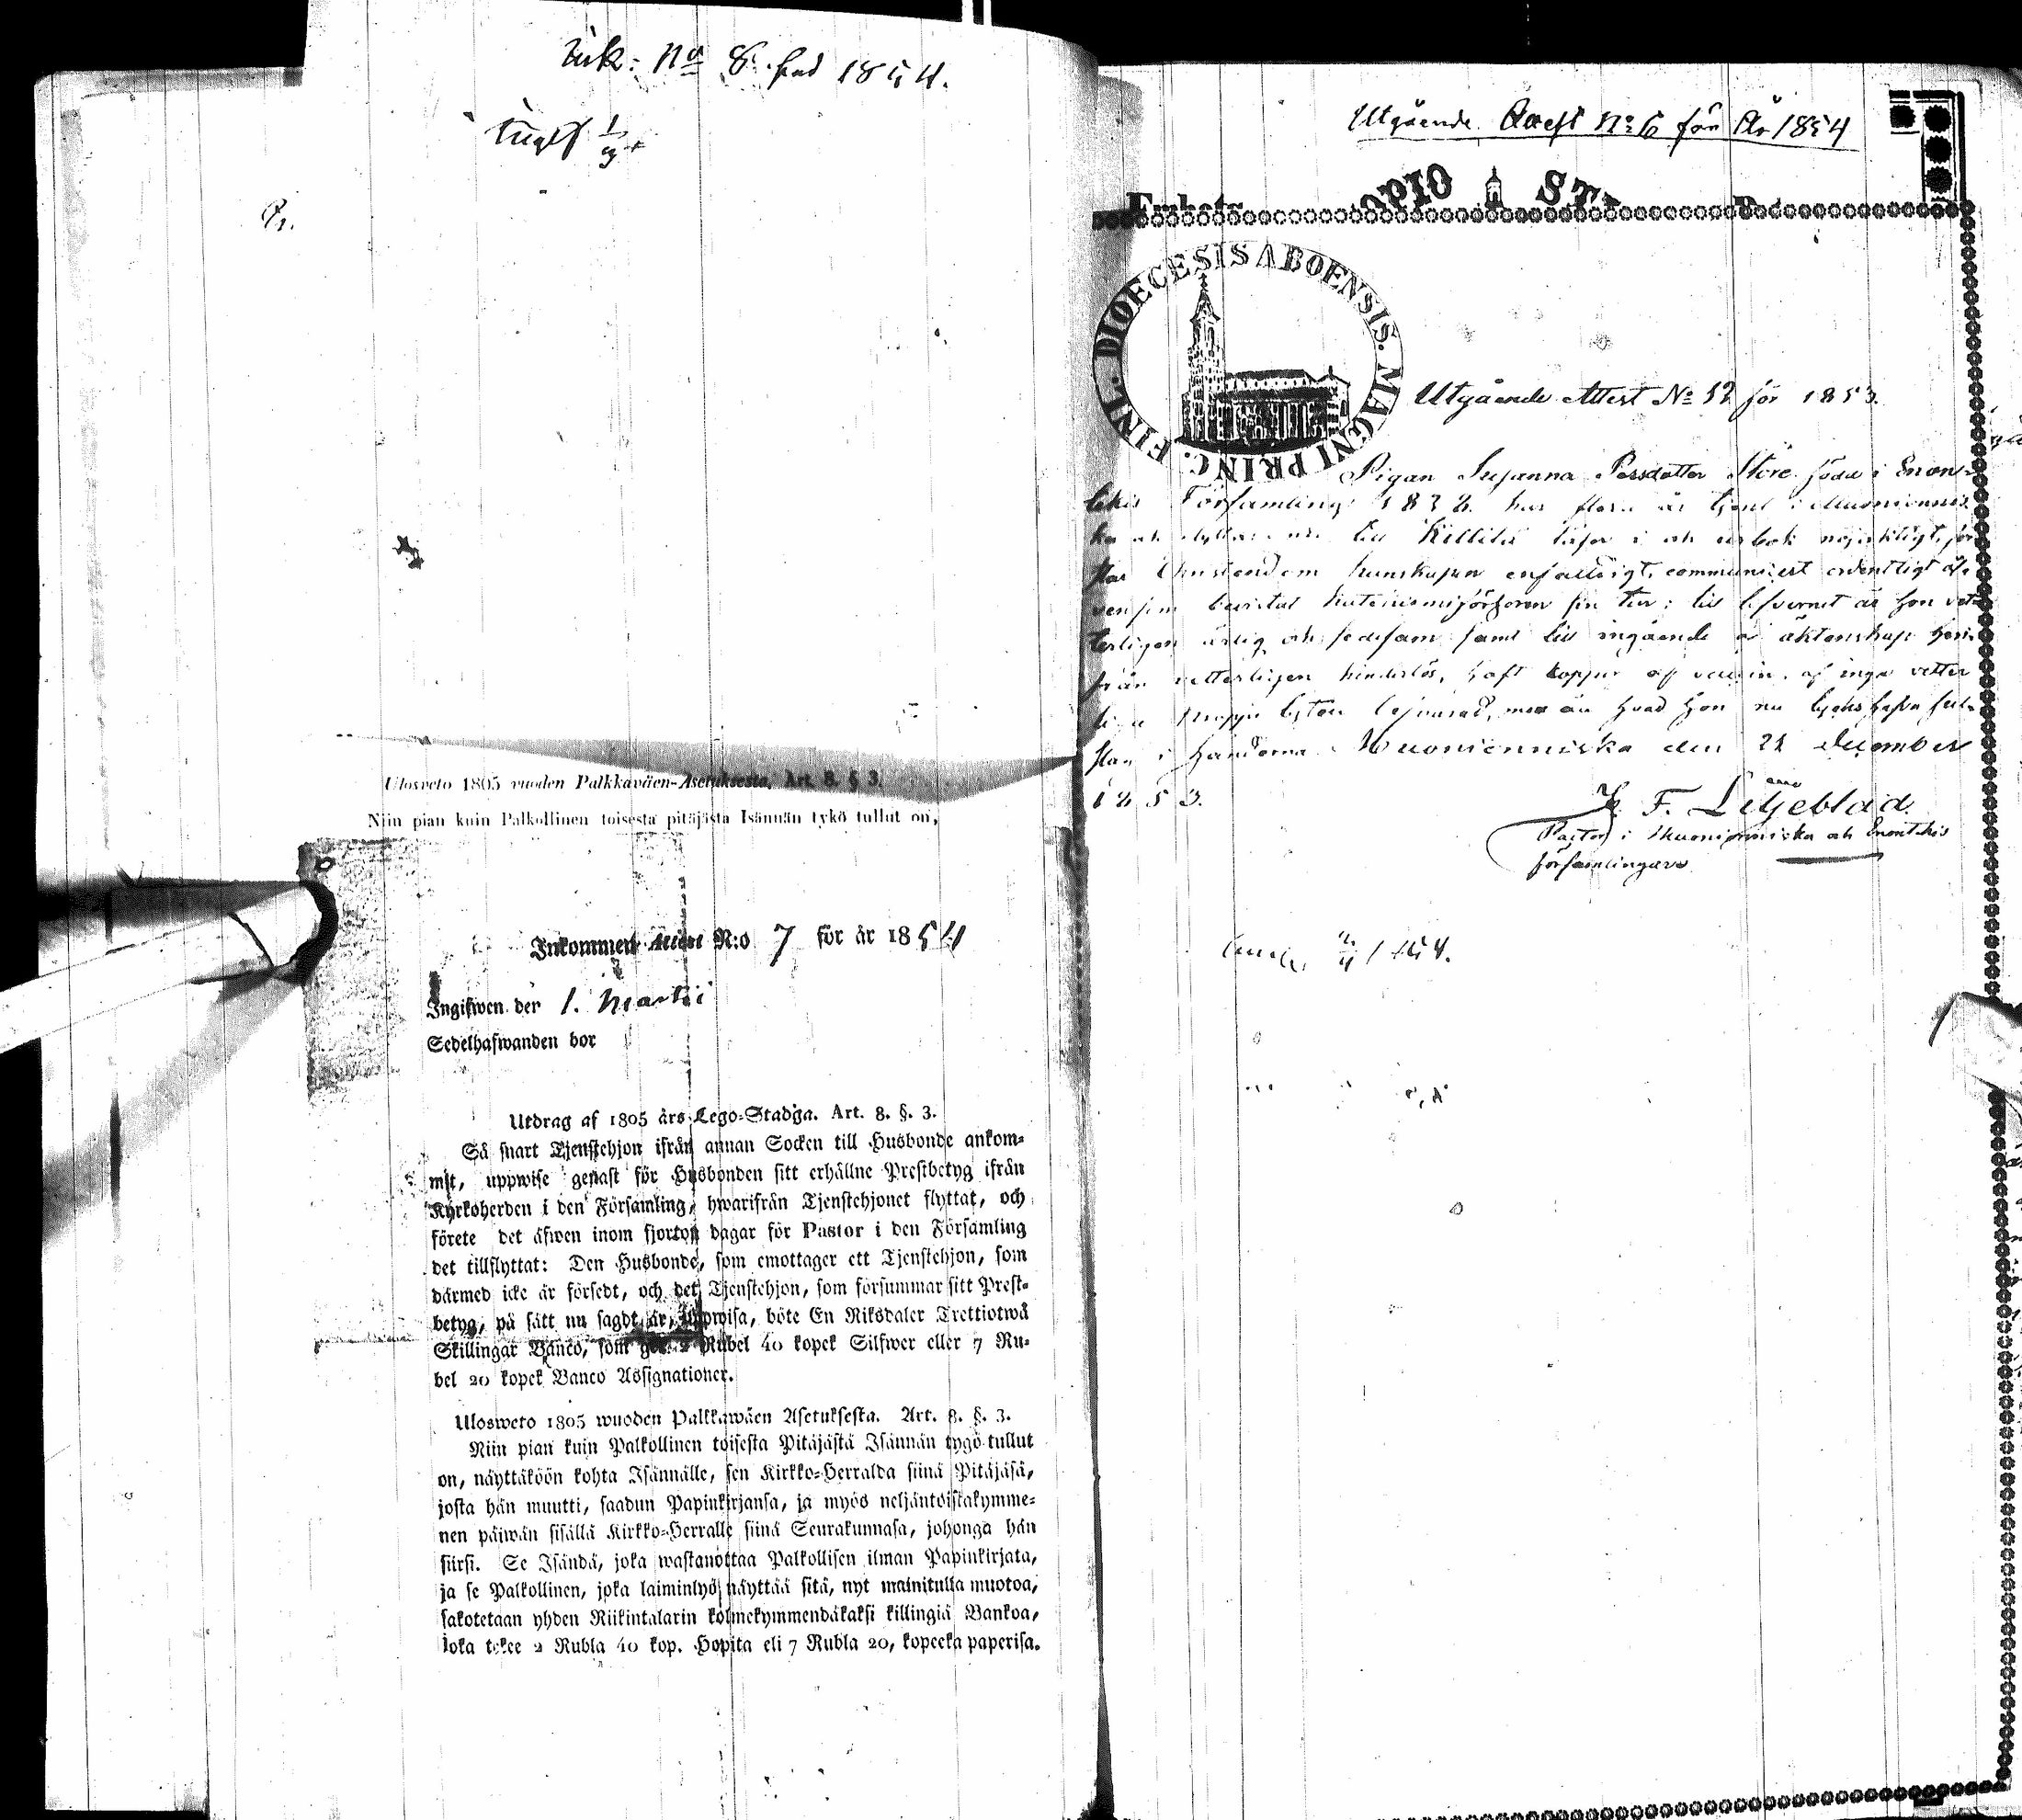 Ink: No 8 för 1854.
Ulosveto 1805 vuoden Palkkaväen-Asetuksesta, Art. 8. § 3.
Niin pian kuin Palkollinen toisesta pitäjästä Isännän tykö tullut on,
Inkommen Attest N:o 7 för år 1854
Ingifwen den 1. Martii
Sedelhafwanden bor
Utdrag af 1805 års Lego-Stadga. Art. 8. §. 3.
Så snart Tjenstehjon ifrån annan Socken till Husbonde ankom-
mit, uppwise genast för Husbonden sitt erhållne Prestbetyg ifrån
Kyrkoherden i den Församling, hwarifrån Tjenstehjonet flyttat, och
förete det äfwen inom fjorton dagar för Pastor i den Församling
det tillflyttat: Den Husbonde, som emottager ett Tjenstehjon, som
därmed icke är försedt, och det Tjenstehjon, som försummar sitt Prest-
betyg, på sätt nu sagdt är, uppwisa, böte En Riksdaler Trettiotwå
Skillingar Banco, som gör 2 Rubel 40 kopek Silfwer eller 7 Ru-
bel 20 kopek Banco Assignationer.
Ulosweto 1805 wuoden Palkkawäen Asetuksesta. Art. 8. §. 3.
Niin pian kuin Palkollinen toisesta Pitäjästä Isännän tygö tullut
on, näyttäköön kohta Isännälle, sen Kirkko-Herralda siinä Pitäjäsä,
josta hän muutti, saadun Papinkirjansa, ja myös neljäntoistakymme-
nen päiwän sisällä Kirkko-Herralle siinä Seurakunnasa, johonga hän
siirsi. Se Isändä, joka wastanottaa Palkollisen ilman Papinkirjata,
ja se Palkollinen, joka laiminlyö näyttää sitä, nyt mainitulla muotoa,
sakotetaan yhden Riikintalarin kolmekymmendäkaksi killingiä Bankoa,
joka tekee 2 Rubla 40 kop. Hopita eli 7 Rubla 20, kopeeka paperisa.
Utgående Attest No 6 för År 1854
OPIO ST
Embets
FINL. DIOECESIS ABOENSIS. MAGNI PRINC.
Utgående Attest No 52 för 1853.
Pigan Susanna Persdotter Niore född i Enon-
tekis Församling 1838. har flera år tjent i Muonionnis-
ka och flyttar nu till Kittilä läser i och utbok nöjaktigt, för-
står Christendom kunskapen enfaldigt, communicert ordentligt äf-
vensom bevistat katekismiförhören sin tur; till lefvernet är hon vet-
terligen ärlig och sedesam samt till ingående af äktenskap häri-
från vetterligen hinderlös, haft koppor af vaccin, af inga vetter
kroppslyten besvärad, mer än hvad hon nu
i händerna. Muonionniska den 21 December
1853.
F. Liljeblad
Pastor i Muonionniska och Enontekis
församlingar
1854.